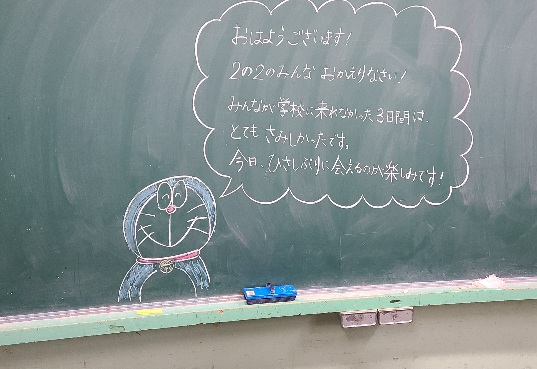 おはようございます!
2の2のみんな おかえりなさい!
みんなが学校に来れなかった3日間は、
とても さみしかったです。
今日、ひさしぶりに会えるのが楽しみです!